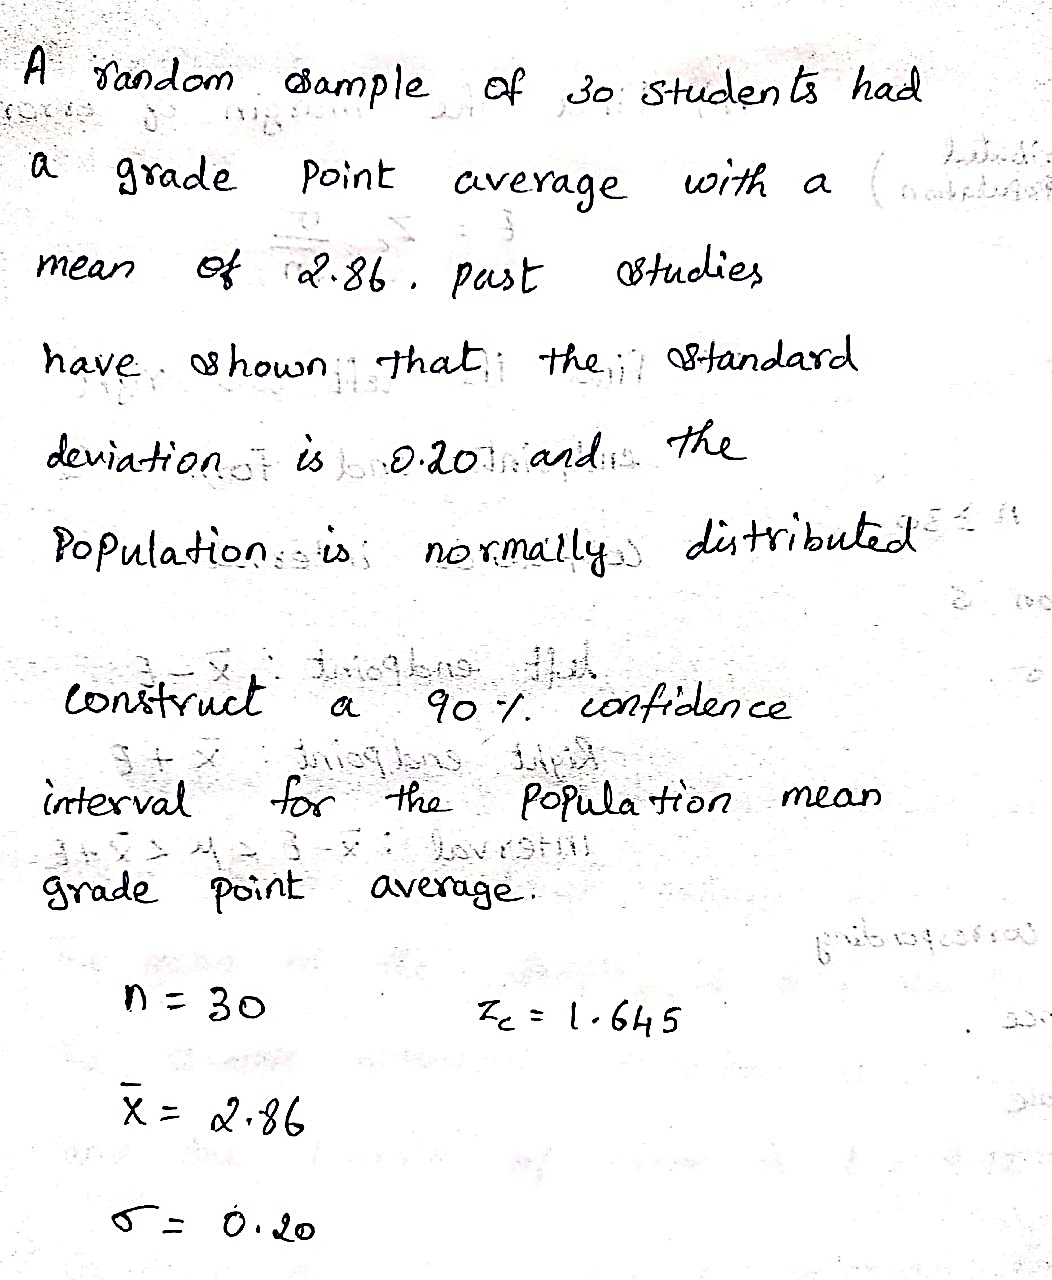 A random sample of 30 students had
a grade point average with a
mean of 2.86. past studies
have shown that the standard
deviation is 0.20 and the
Population is normally distributed
construct a 90 %. confidence
interval for the population mean
grade point average.
n = 30 Zc = 1.645
x̄ = 2.86
σ = 0.20